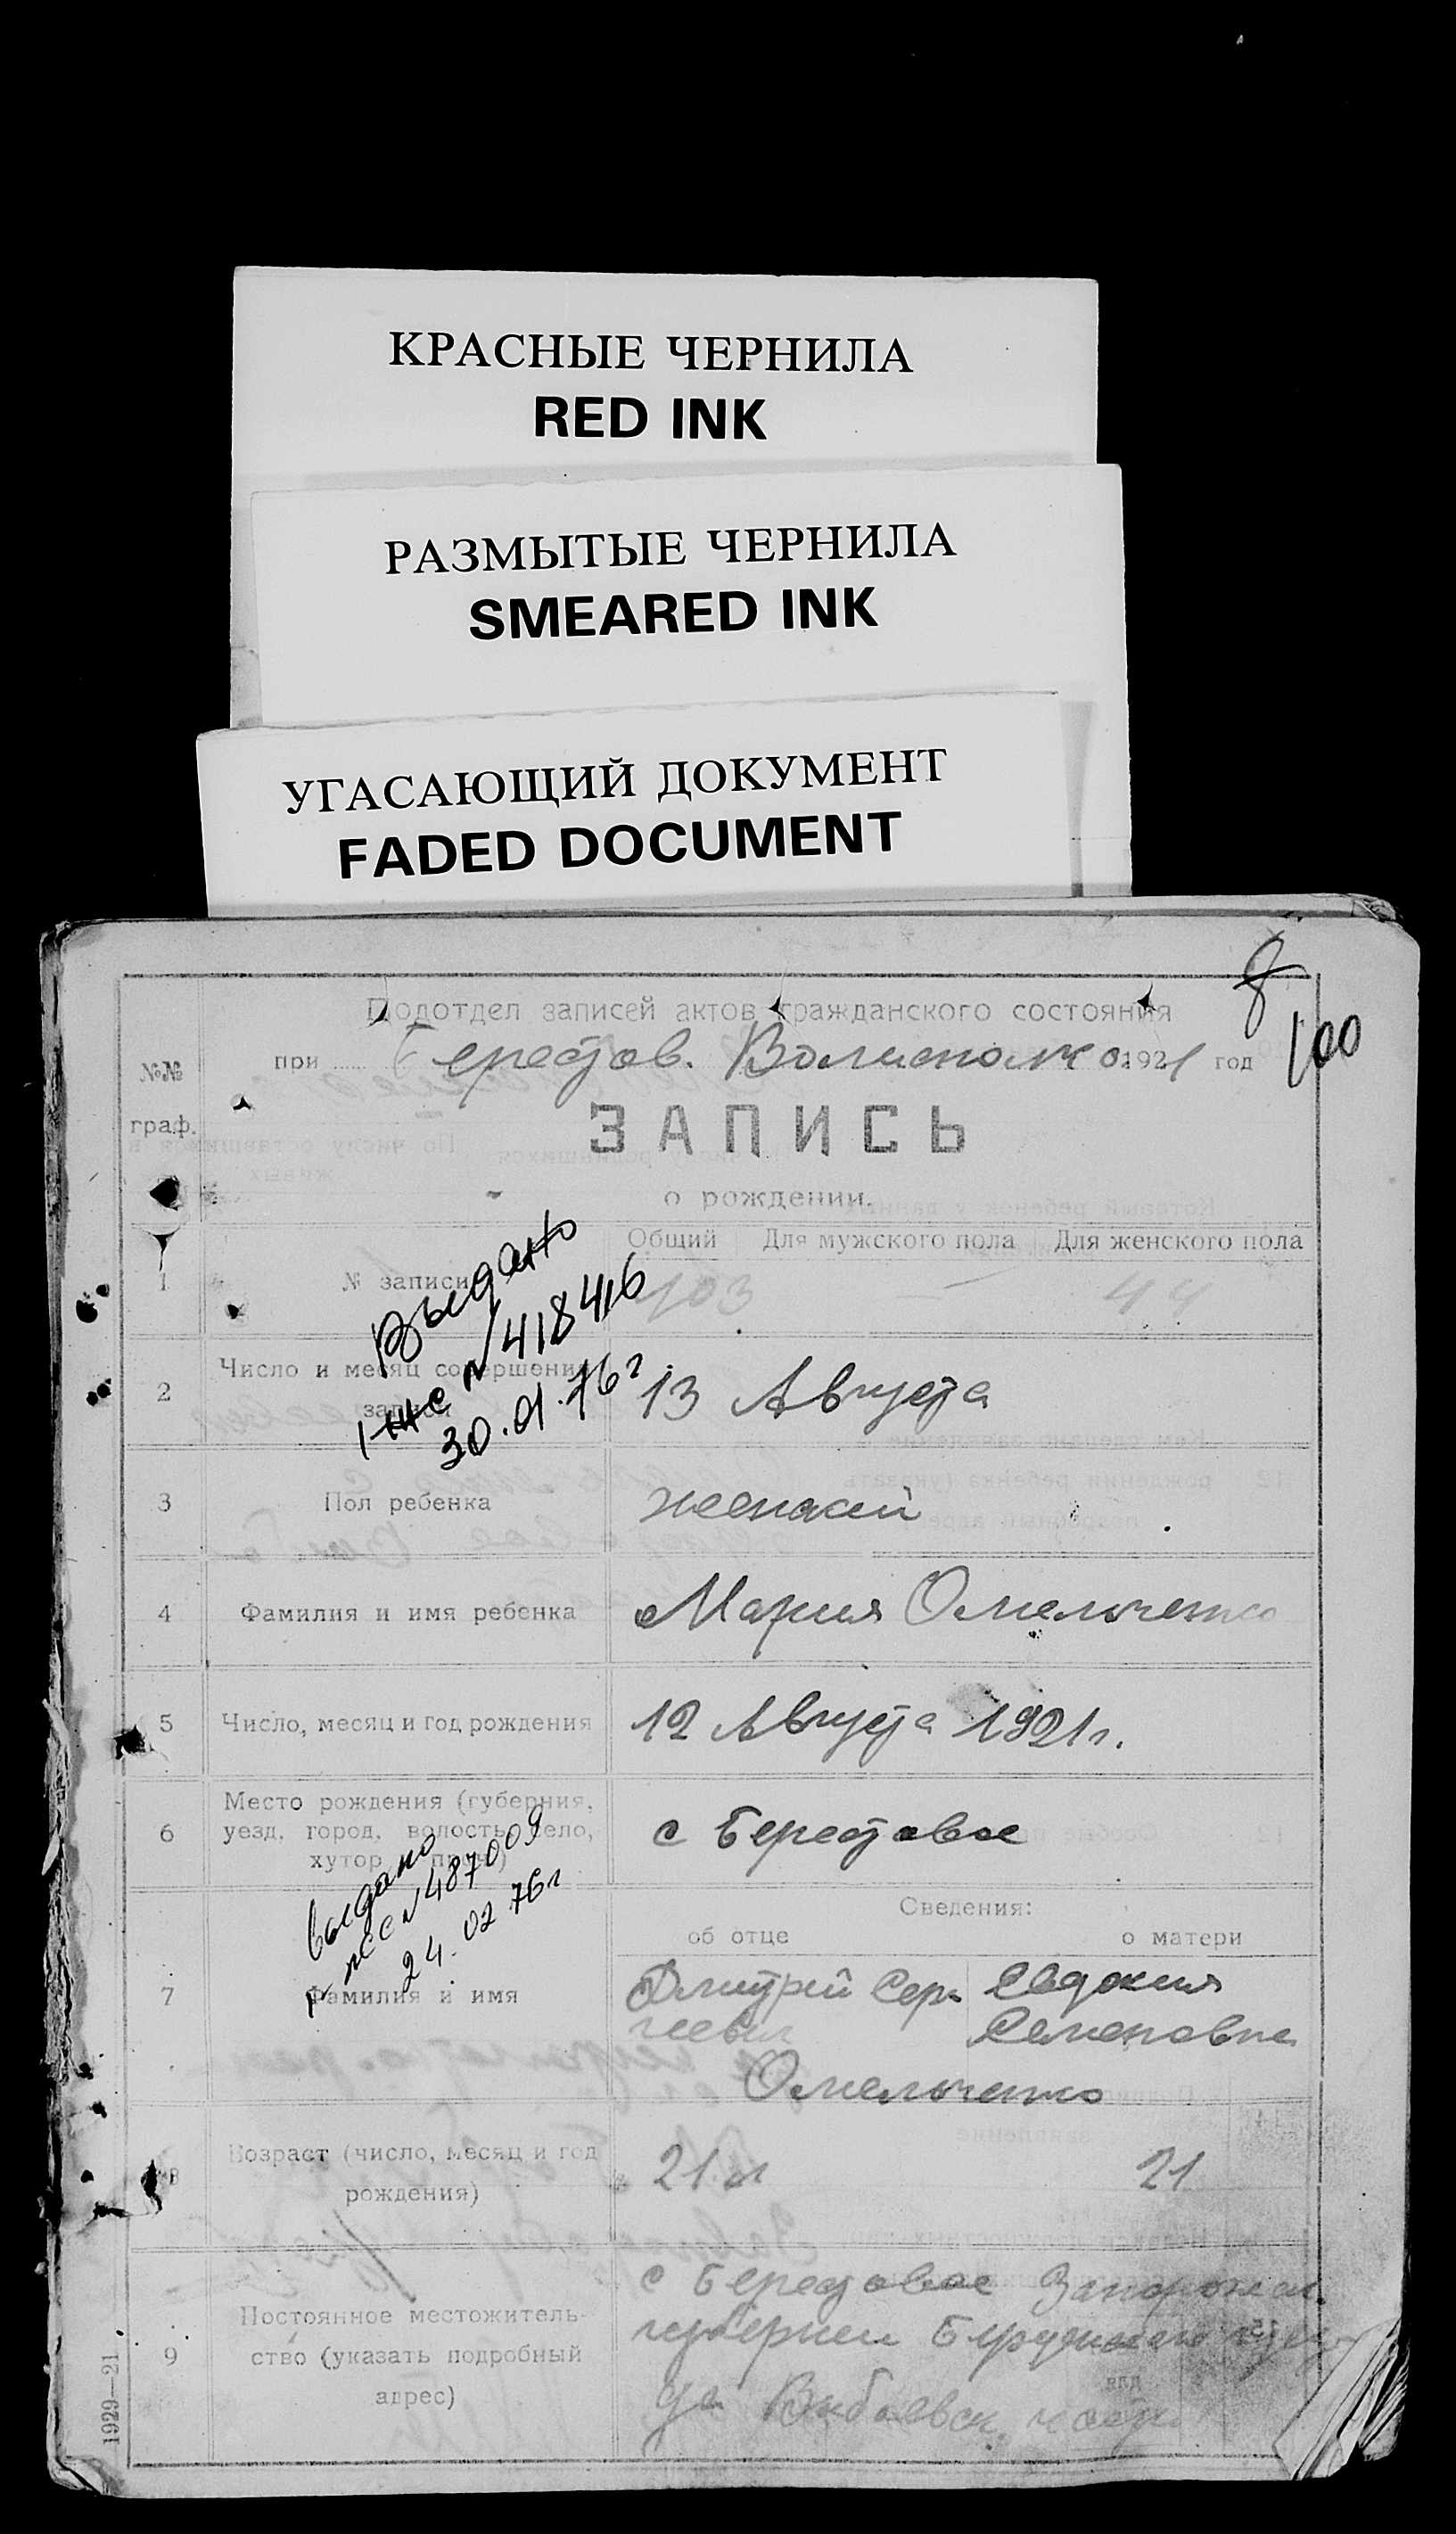 КРАСНЫЕ ЧЕРНИЛА
RED INK
РАЗМЫТЫЕ ЧЕРНИЛА
SMEARED INK
УГАСАЮЩИЙ ДОКУМЕНТ
FADED DOCUMENT
8
100
Подотдел записей актов гражданского состояния
при Берестов. 1921 год
№№ граф.
ЗАПИСЬ
о рождении.
Общий Для мужского пола Для женского пола
1 № записи 103 — 44
Выдано
№ 418416
30.01.76 г
2 Число и месяц совершения записи 13 Августа
3 Пол ребенка женский
4 Фамилия и имя ребенка Мария Омельченко
5 Число, месяц и год рождения 12 Августа 1921 г.
6 Место рождения (губерния, уезд, город, волость, село, хутор и проч.) с Берестовое
выдано
№ 487009
24.02 76 г
Сведения:
об отце о матери
7 Фамилия и имя Дмитрий Сер Евдокия
геевич Семеновна
Омельченко
8 Возраст (число, месяц и год рождения) 21 л 21
9 Постоянное местожительство (указать подробный адрес) с Берестовое Запорожск.
губернии
1929—21